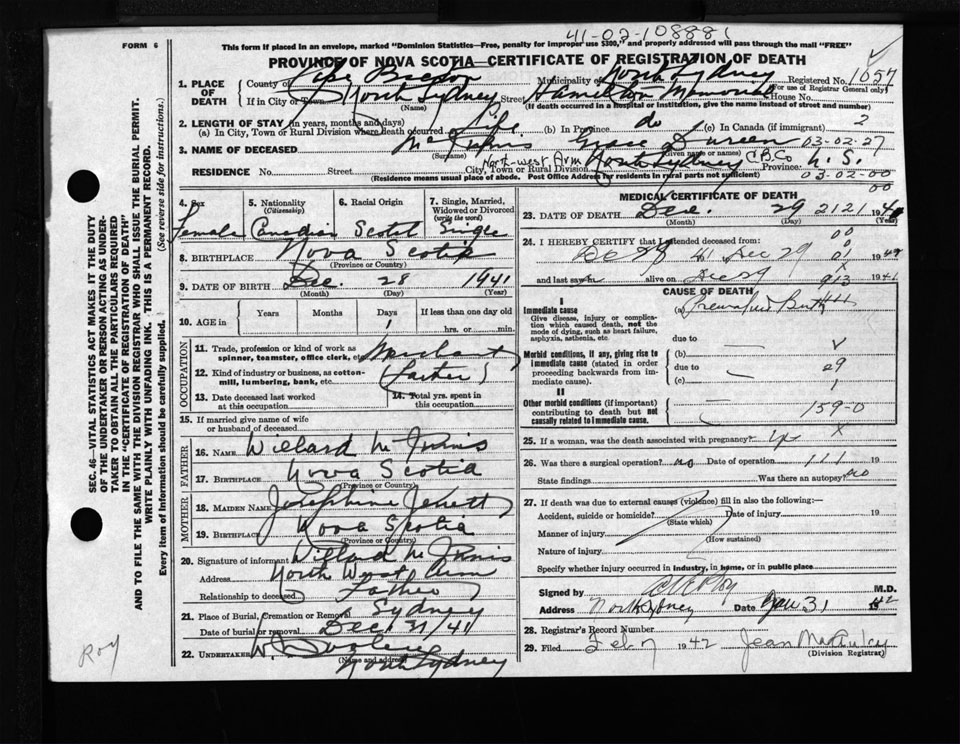 41-02-108881
FORM 6
This form if placed in an envelope, marked "Dominion Statistics—Free, penalty for improper use $300," and properly addressed will pass through the mail "FREE"
PROVINCE OF NOVA SCOTIA—CERTIFICATE OF REGISTRATION OF DEATH
1. PLACE OF DEATH
County of Cape Breton Municipality of North Sydney Registered No. 1057
(For use of Registrar General only)
If in City or Town North Sydney Street Hamilton Memorial House No.
(Name) (If death occurred in a hospital or institution, give the name instead of street and number)
2. LENGTH OF STAY (in years, months and days) 2
(a) In City, Town or Rural Division where death occurred Life (b) In Province do (c) In Canada (if immigrant)
3. NAME OF DECEASED McInnis Grace 03-02-27
(Surname) (Given name or names)
RESIDENCE No. Street North-west Arm City, Town or Rural Division North Sydney C.B.Co Province N. S.
(Residence means usual place of abode. Post Office Address for residents in rural parts not sufficient) 03-02-00
00
SEC. 46—VITAL STATISTICS ACT MAKES IT THE DUTY
OF THE UNDERTAKER OR PERSON ACTING AS UNDER-
TAKER TO OBTAIN ALL THE PARTICULARS REQUIRED
IN THE "CERTIFICATE OF REGISTRATION OF DEATH"
AND TO FILE THE SAME WITH THE DIVISION REGISTRAR WHO SHALL ISSUE THE BURIAL PERMIT.
(See reverse side for instructions.)
WRITE PLAINLY WITH UNFADING INK. THIS IS A PERMANENT RECORD.
Every item of information should be carefully supplied.
4. Sex
Female
5. Nationality
(Citizenship)
Canadian
6. Racial Origin
Scotch
7. Single, Married,
Widowed or Divorced
(write the word)
Single
8. BIRTHPLACE Nova Scotia
(Province or Country)
9. DATE OF BIRTH Dec. 28 1941
(Month) (Day) (Year)
10. AGE in
Years Months Days If less than one day old
1 hrs. or min.
OCCUPATION
11. Trade, profession or kind of work as
spinner, teamster, office clerk, etc. Merchant
12. Kind of industry or business, as cotton-
mill, lumbering, bank, etc. (Father)
13. Date deceased last worked
at this occupation
14. Total yrs. spent in
this occupation
15. If married give name of wife
or husband of deceased
FATHER
16. NAME Willard McInnis
17. BIRTHPLACE Nova Scotia
(Province or Country)
MOTHER
18. MAIDEN NAME Josephine
19. BIRTHPLACE Nova Scotia
(Province or Country)
20. Signature of informant Willard McInnis
Address North West Arm
Relationship to deceased Father
21. Place of Burial, Cremation or Removal Sydney
Date of burial or removal Dec. 31/41
22. UNDERTAKER W.
(Name and address) North Sydney
Roy
MEDICAL CERTIFICATE OF DEATH
23. DATE OF DEATH Dec. 29 2121 19
(Month) (Day) (Year)
24. I HEREBY CERTIFY that I attended deceased from
Dec 28 41 Dec 29 1941
and last saw h alive on Dec 29 1941
913
CAUSE OF DEATH
I
Immediate cause
Give disease, injury or complica-
tion which caused death, not the
mode of dying, such as heart failure,
asphyxia, asthenia, etc.
(a) Premature Birth
due to
Morbid conditions, if any, giving rise to
immediate cause (stated in order
proceeding backwards from im-
mediate cause).
(b)
due to 29
(c) 1
II
Other morbid conditions (if important)
contributing to death but not
causally related to immediate cause.
159-0
25. If a woman, was the death associated with pregnancy?
26. Was there a surgical operation? no Date of operation 111 19
State findings Was there an autopsy? no
27. If death was due to external causes (violence) fill in also the following:—
Accident, suicide or homicide? Date of injury 19
(State which)
Manner of injury
(How sustained)
Nature of injury
Specify whether injury occurred in industry, in home, or in public place
Signed by M.D.
Address North Sydney Date Jan 31 1942
28. Registrar's Record Number
29. Filed Feb 7 1942 Jean MacAulay
(Division Registrar)